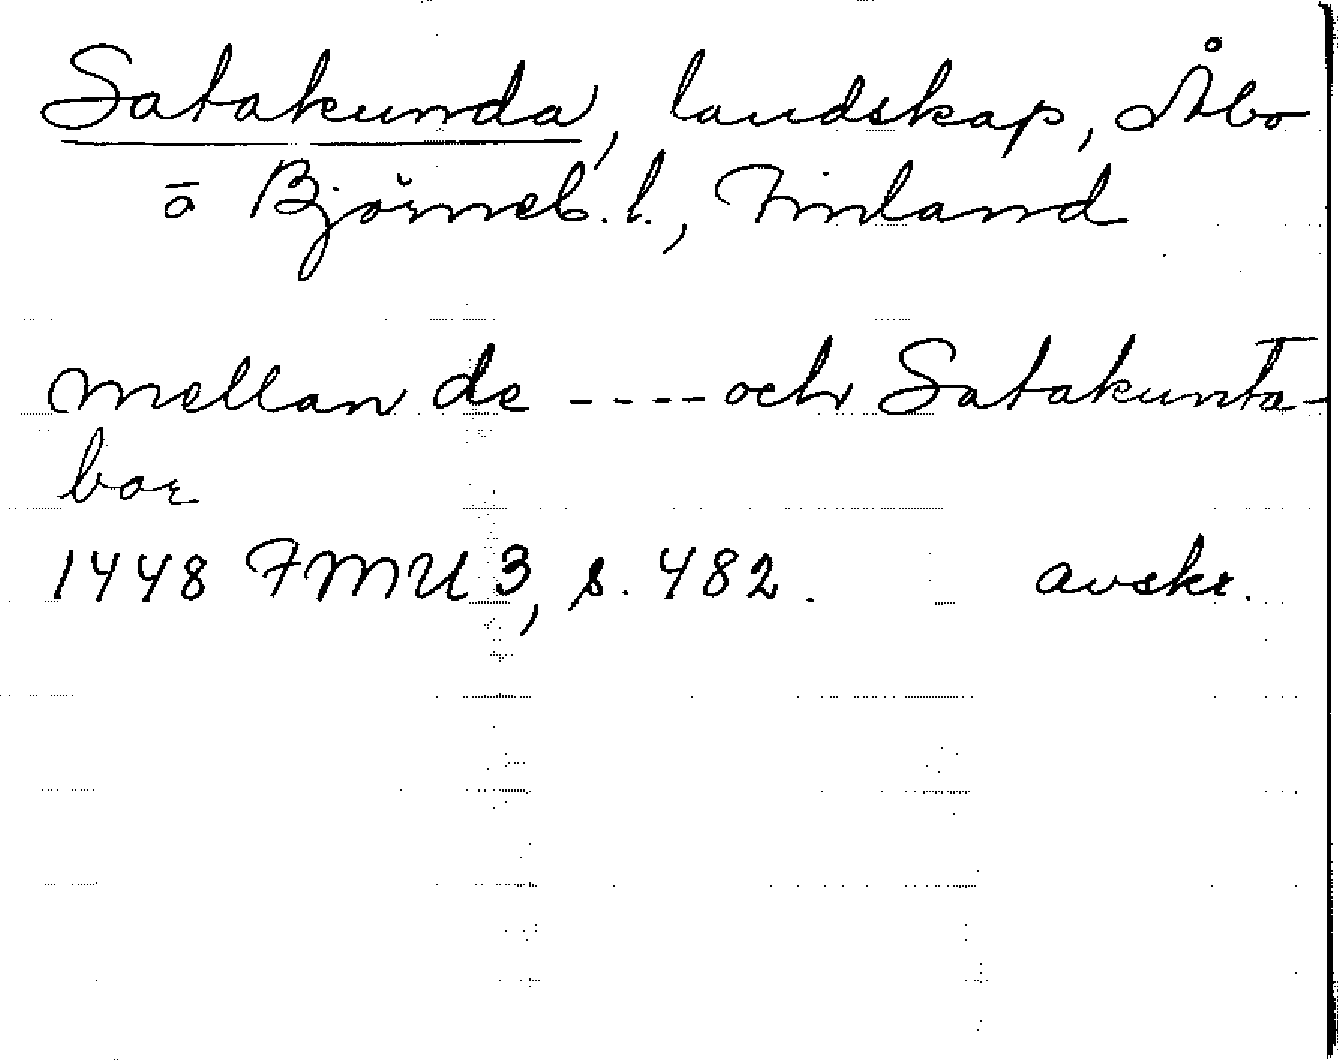 Satakunda, landskap, Åbo
ō Björneb. l., Finland
mellan de ---- och Satakunta-
boar
1448 FMU 3, s. 482. avskr.